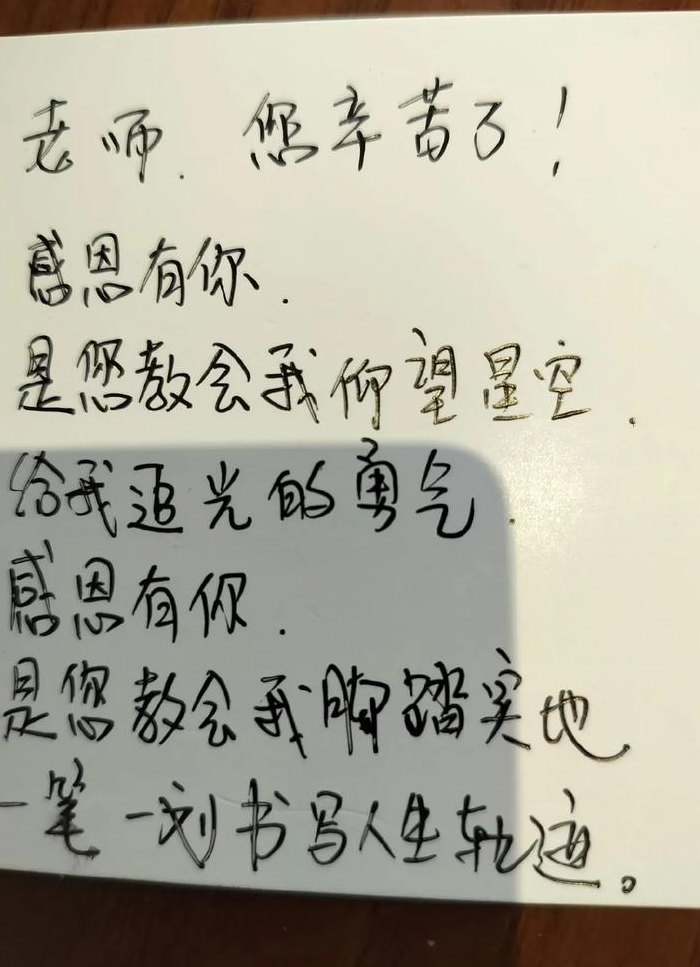 老师.您辛苦了!
感恩有你.
是您教会我仰望星空.
给我追光的勇气.
感恩有你.
是您教会我脚踏实地
一笔一划书写人生轨迹。